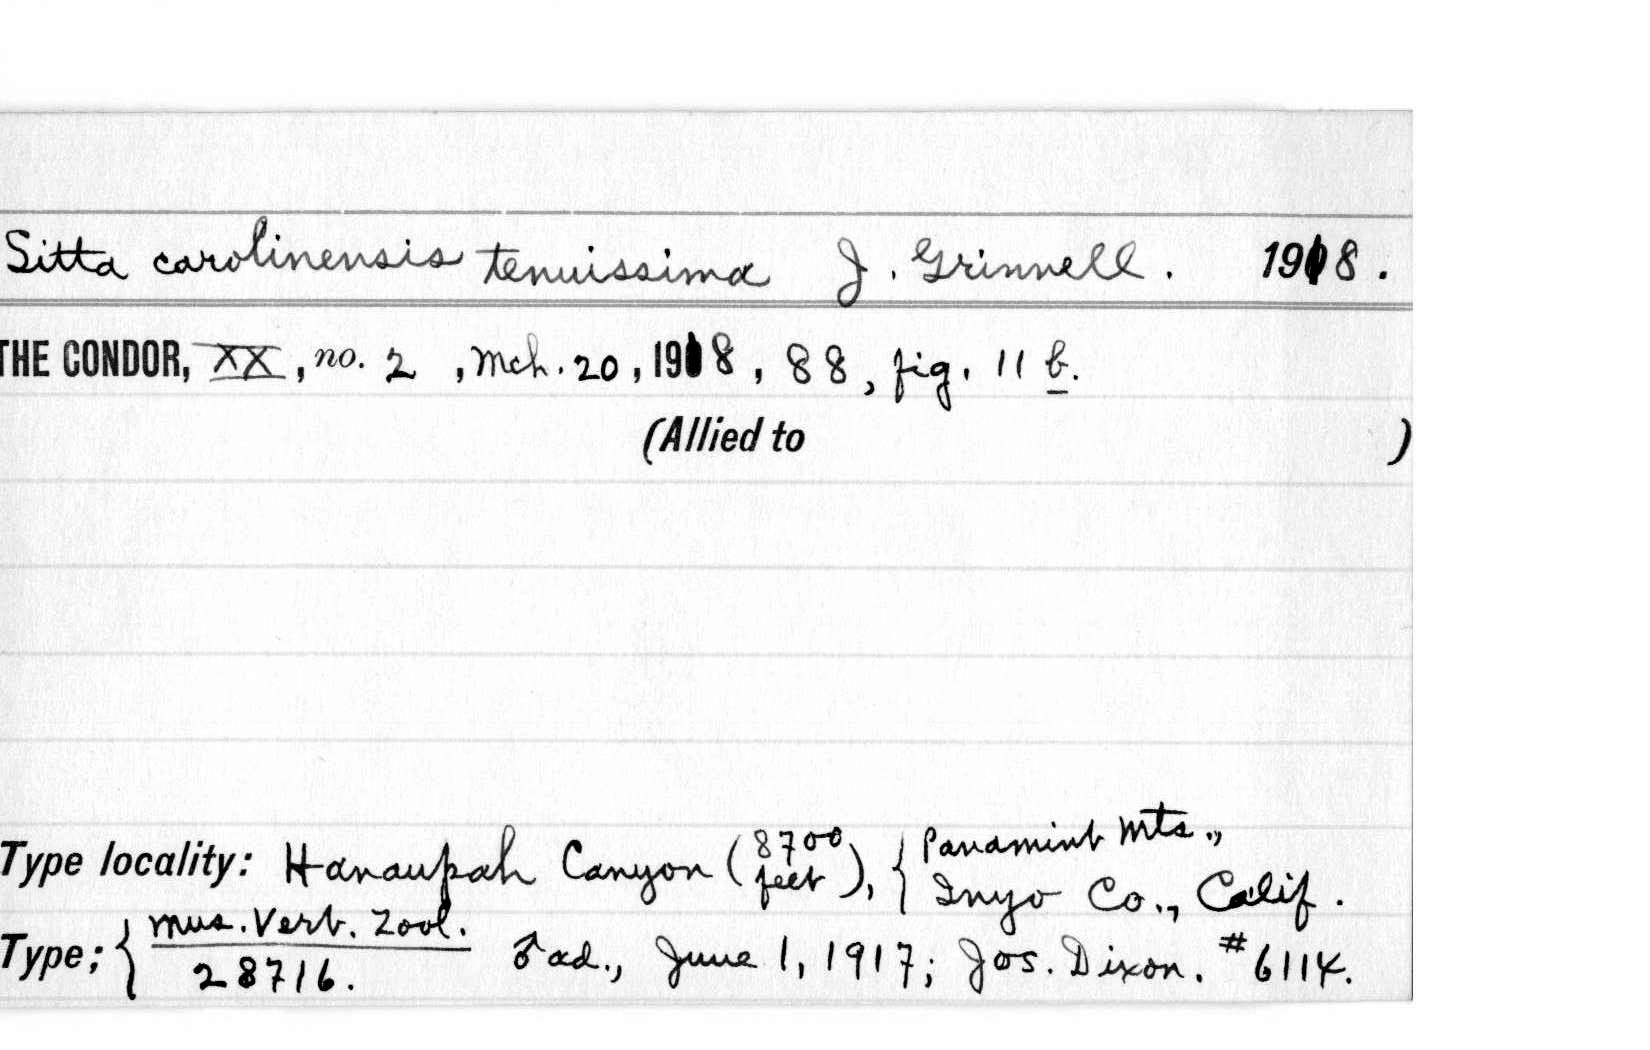 Sitta carolinensis tenuissima J. Grinnell. 1918.
THE CONDOR, XX, no. 2, Mch. 20, 1918, 88, fig. 11 b.
(Allied to )
Type locality: Hanaupah Canyon (8700 feet), { Panamint Mts., Inyo Co., Calif.
Type; { Mus. Vert. Zool. 28716. ♂ ad., June 1, 1917; Jos. Dixon. #6114.